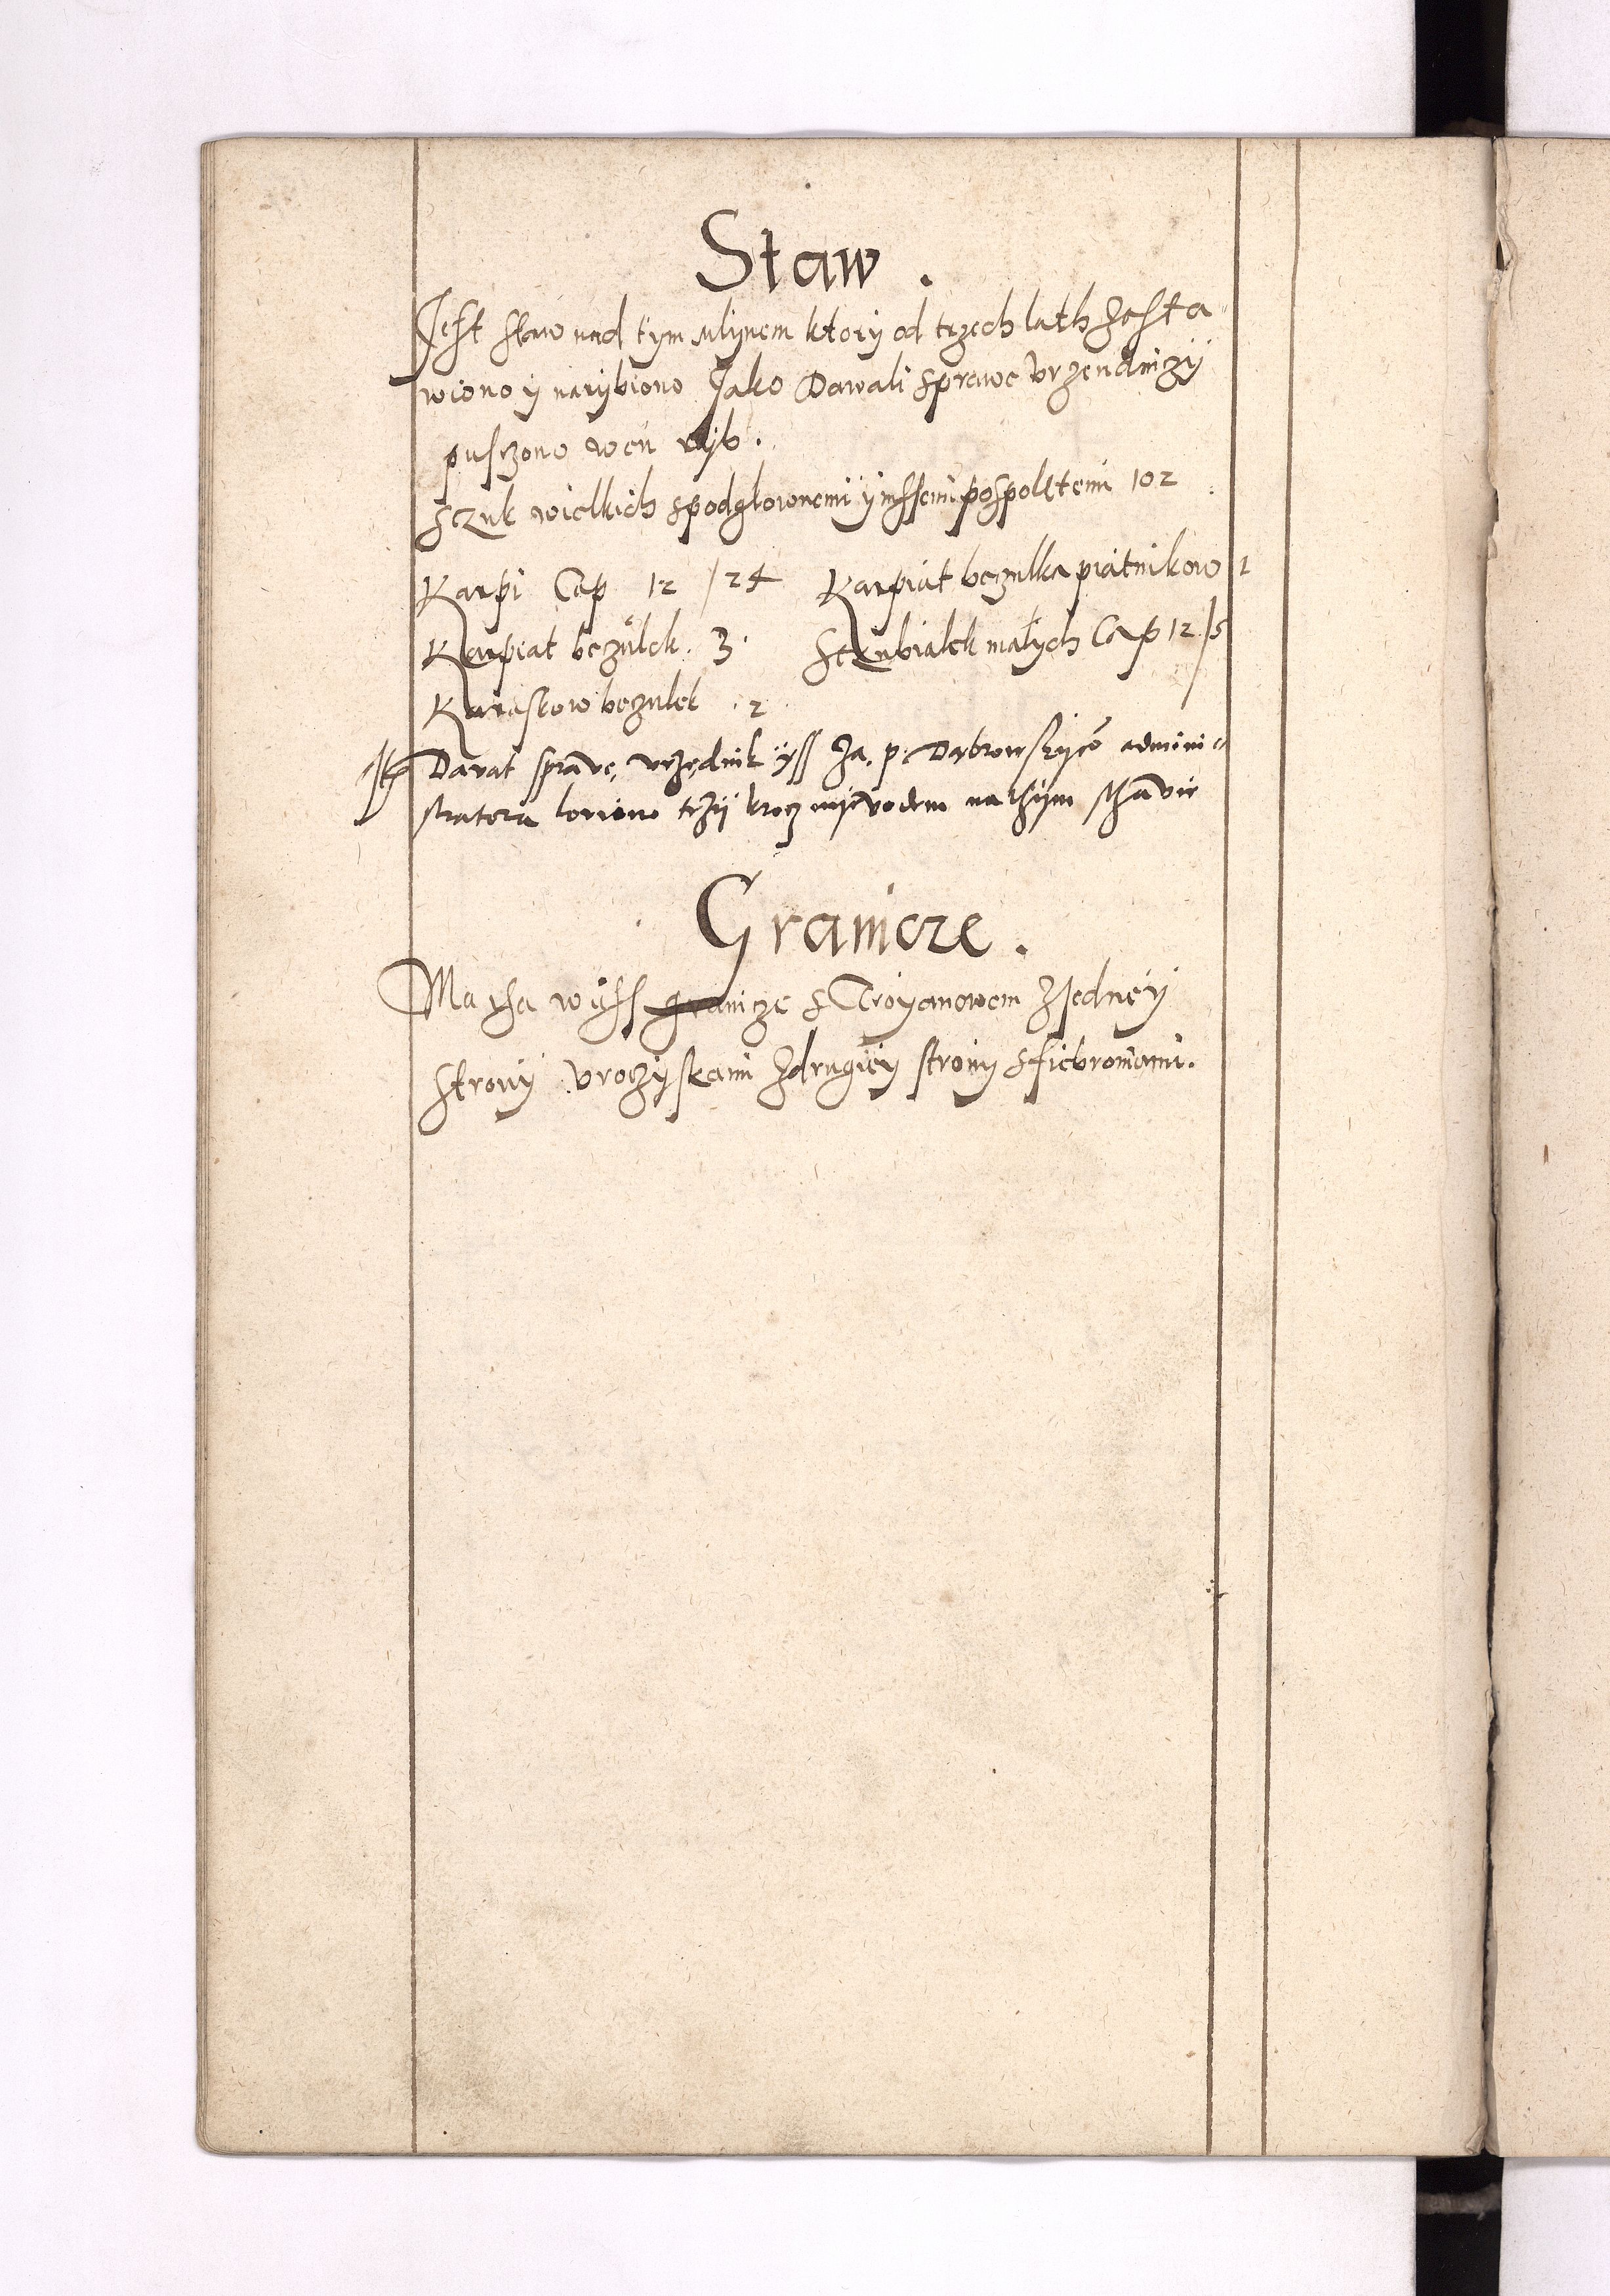 Staw.
Jest staw nad tym mlynem ktory od trzech lath zosta-
wiono y narybiono Jako Dawali sprawe Vrzendniczy
puszczono wen ryb.
Sczuk wielkich spodglownemi y inssemi pospolitemi 102
Karpi Cap 12 / 24 Karpiat beczulka piatnikow 1
Karpiat beczulek. 3. Sczubialek malych Cap 12 / 5
Karaskow beczulek . 2
Dawal sprawe, vrzednik yss Za. p. Dabrowskyego admini-
stratora lowiono trzy krocz nyewodem na thym sthawie
Granicze.
Ma tha wyess granicze s Troyanowem Zjedney
strony Vroczyskami Zdrugiey strony s